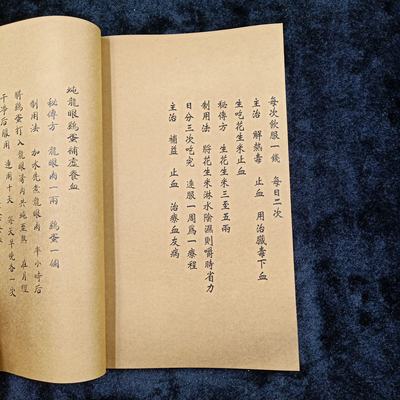 每次飲服一錢 每日二次
主治 解熱毒 止血 用治臟毒下血
生吃花生米止血
秘傳方 生花生米三至五兩
制用法 將花生米淋水陰濕則嚼時省力
日分三次吃完 連服一周爲一療程
主治 補益 止血 治療血友病
炖龍眼鷄蛋補虛養血
秘傳方 龍眼肉一兩 鷄蛋一個
制用法 加水先煮龍眼肉 半小時后
將鷄蛋打入龍眼膏内共炖至熟 在月經
干净后服用 連用十天 每天早晚各一次